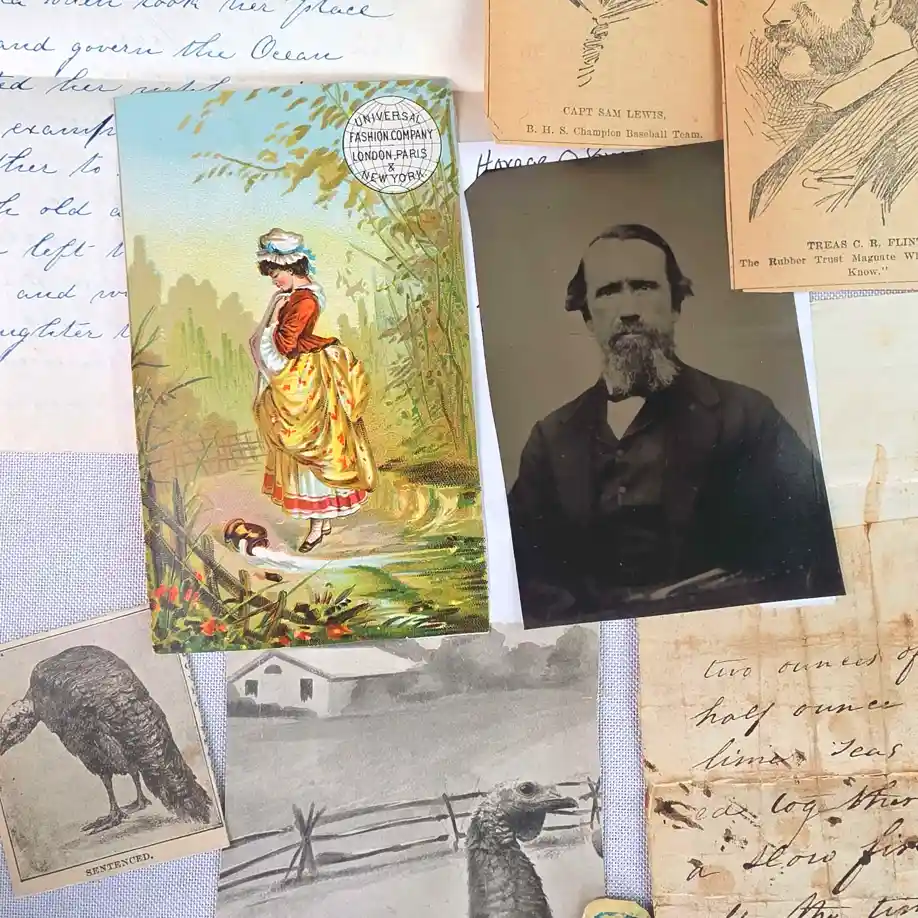 when took her place
and govern the Ocean
her
examp
ther to
old a
left t
and w
ughter t
UNIVERSAL
FASHION COMPANY
LONDON, PARIS
&
NEW YORK.
CAPT SAM LEWIS,
B. H. S. Champion Baseball Team.
TREAS C. R. FLIN
The Rubber Trust Magnate Wh
Know."
Horace
SENTENCED.
two ounces of
half ounce
lime Teas
log
a slow fi
the